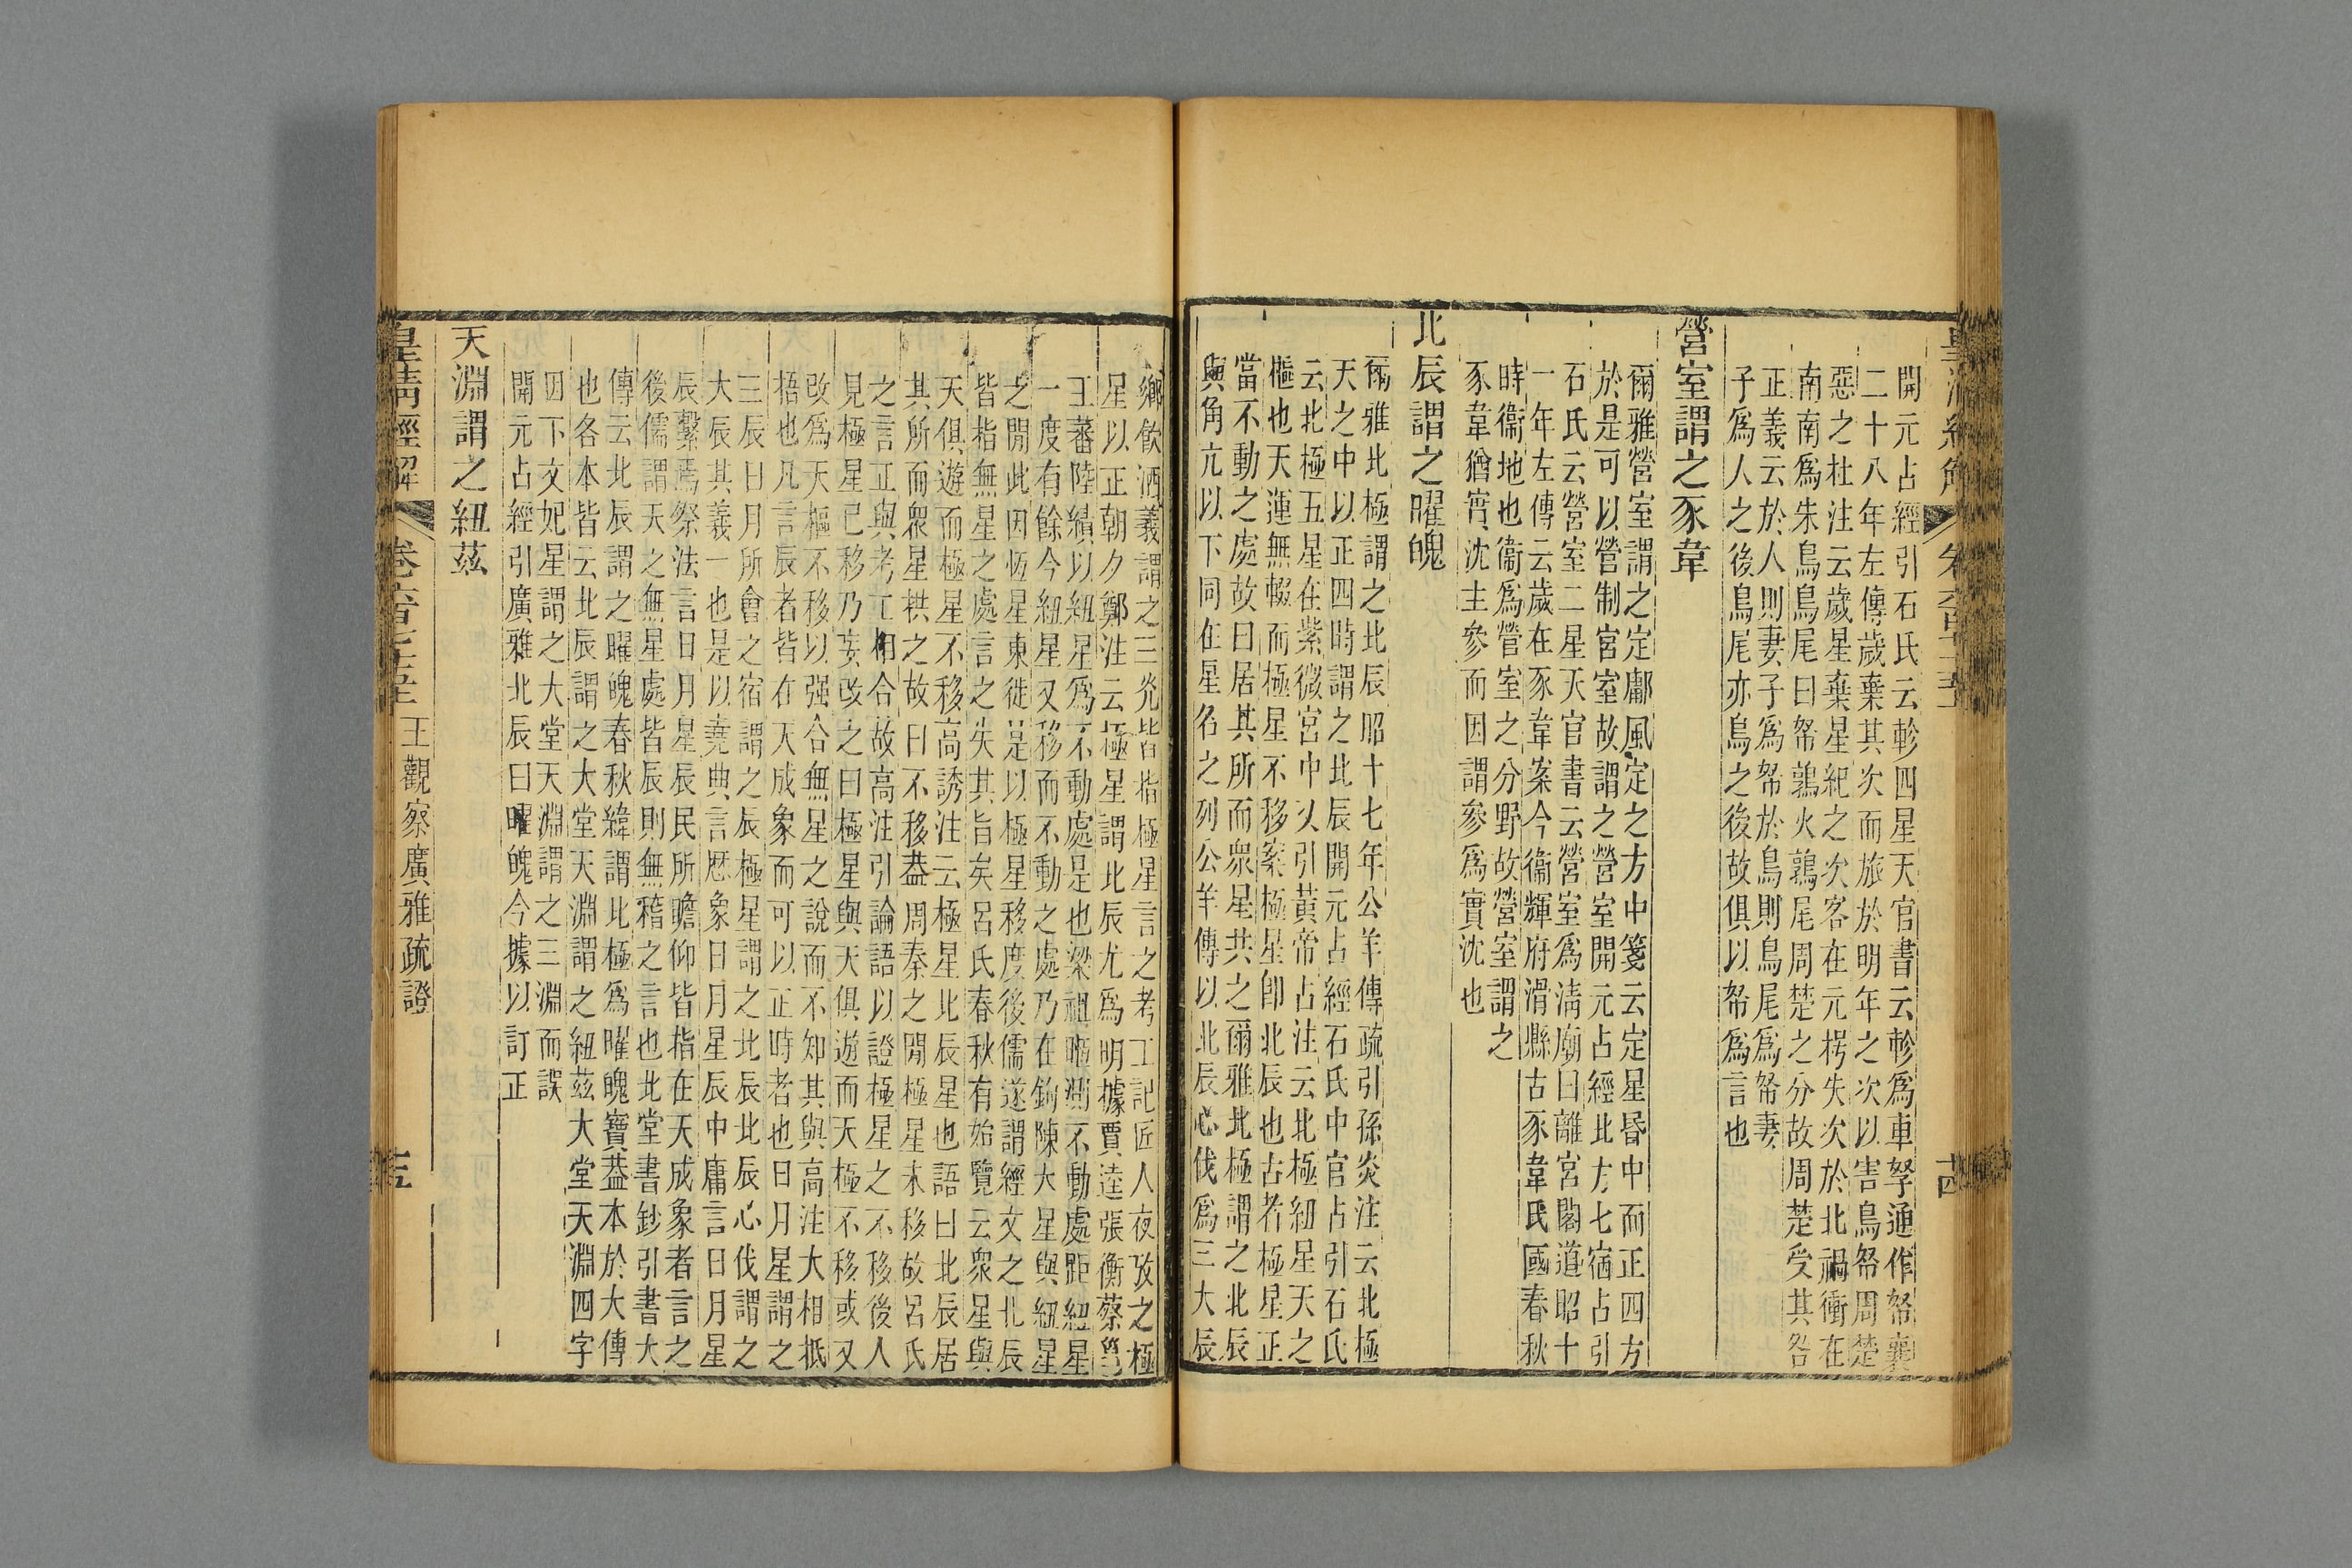 開元占經引石氏云軫四星天官書云軫爲車孥通作帑襄
二十八年左傳歲棄其次而旅於明年之次以害鳥帑周楚
惡之杜注云歲星棄星紀之次客在元枵失次於北禍衝在
南南爲朱鳥鳥尾曰帑鶉火鶉尾周楚之分故周楚受其咎
正義云於人則妻子爲帑於鳥則鳥尾爲帑妻
子爲人之後鳥尾亦鳥之後故俱以帑爲言也
營室謂之豕韋
爾雅營室謂之定鄘風定之方中箋云定星昏中而正四方
於是可以營制宮室故謂之營室開元占經北方七宿占引
石氏云營室二星天官書云營室爲淸廟曰離宮閣道昭十
一年左傳云歲在豕韋案今衞輝府滑縣古豕韋氏國春秋
時衞地也衞爲營室之分野故營室謂之
豕韋猶實沈主參而因謂參爲實沈也
北辰謂之曜魄
爾雅北極謂之北辰昭十七年公羊傳疏引孫炎注云北極
天之中以正四時謂之北辰開元占經石氏中官占引石氏
云北極五星在紫微宮中又引黃帝占注云北極紐星天之
樞也天運無輟而極星不移案極星卽北辰也古者極星正
當不動之處故曰居其所而衆星共之爾雅北極謂之北辰
與角亢以下同在星名之列公羊傳以北辰心伐爲三大辰
鄉飲酒義謂之三光皆指極星言之考工記匠人夜攷之極
星以正朝夕鄭注云極星謂北辰尤爲明據賈逵張衡蔡邕
王蕃陸績以紐星爲不動處是也梁祖暅測不動處距紐星
一度有餘今紐星又移而不動之處乃在鉤陳大星與紐星
之閒此因恆星東徙是以極星移度後儒遂謂經文之北辰
皆指無星之處言之失其旨矣呂氏春秋有始覽云衆星與
天俱遊而極星不移高誘注云極星北辰星也語曰北辰居
其所而衆星拱之故曰不移葢周秦之閒極星未移故呂氏
之言正與考工相合故高注引論語以證極星之不移後人
見極星已移乃妄改之曰極星與天俱遊而天極不移或又
改爲天樞不移以强合無星之說而不知其與高注大相抵
牾也凡言辰者皆在天成象而可以正時者也日月星謂之
三辰日月所會之宿謂之辰極星謂之北辰北辰心伐謂之
大辰其義一也是以堯典言厯象日月星辰中庸言日月星
辰繫焉祭法言日月星辰民所瞻仰皆指在天成象者言之
後儒謂天之無星處皆辰則無稽之言也北堂書鈔引書大
傳云北辰謂之曜魄春秋緯謂北極爲曜魄寶葢本於大傳
也各本皆云北辰謂之大堂天淵謂之紐茲大堂天淵四字
因下文妃星謂之大堂天淵謂之三淵而誤
開元占經引廣雅北辰曰曜魄今據以訂正
天淵謂之紐茲
皇淸經解
王觀察廣雅疏證